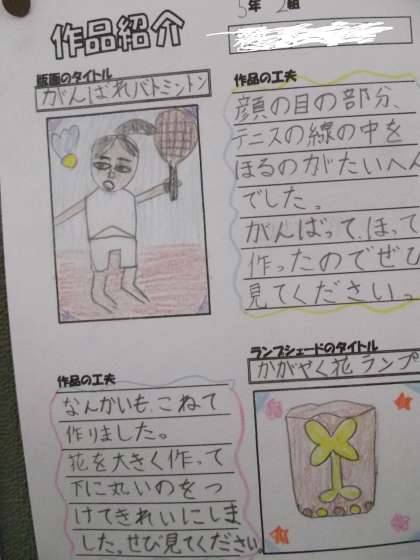 5年 2組
作品紹介
版画のタイトル
がんばれバトミントン
作品の工夫
顔の目の部分、
テニスの線の中を
ほるのがたいへん
でした。
がんばって、ほって
作ったのでぜひ
見てください。
ランプシェードのタイトル
かがやく花ランプ
作品の工夫
なんかいも、こねて
作りました。
花を大きく作って
下に丸いのをつ
けてきれいにしま
した。ぜひ見てください